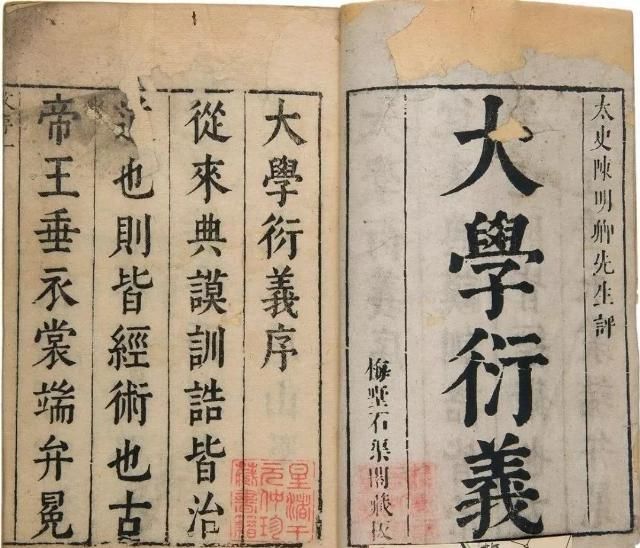 太史陳明卿先生評
大學衍義
梅墅石渠閣藏板
大學衍義序
從來典謨訓誥皆治
也則皆經術也古
帝王垂衣裳端弁冕